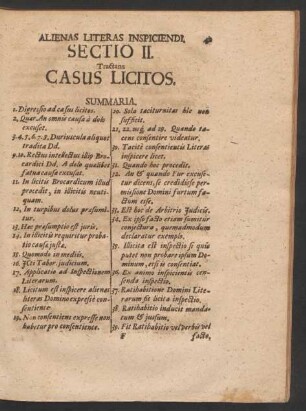 ALIENAS LITERAS INSPICIENDI.
SECTIO II.
Tractans
CASUS LICITOS.
SUMMARIA.
1. Digressio ad casus licitos.
2. Quæ? An omnis causa à dolo excuset.
3. 4. 5. 6. 7. 8. Duriuscula aliquot tradita Dd.
9. 10. Rectus intellectus illiq; Brocardici Dd. A dolo quælibet fatua causa excusat.
11. In licitis Brocardicum illud procedit, in illicitis neutiquam.
12. In turpibus dolus præsumitur.
13. Hæc præsumptio est juris.
14. In illicitis requiritur probatio causæ justæ.
15. Quomodo in mediis,
16. JCti Tabor. judicium,
17. Applicatio ad Inspectionem Literarum.
18. Licitum est inspicere alienas literas Domino expressè consentiente
19. Non consentiens expresse non habetur pro consentiente.
20. Sola taciturnitas hic non sufficit.
21. 22. usq; ad 29. Quando tacens consentire videatur,
30. Tacitè consentientis Literas inspicere licet.
31. Quando hoc procedit.
32. An & quando Fur excusetur dicens, se credidisse permissione Domini furtum factum esse.
33. Est hoc de Arbitrio Judicis.
34. Ex ipso facto etiam sumitur conjectura, quemadmodum declaratur exemplis.
35. Illicita est inspectio si quis putet non probare ipsum Dominum, etsi is consentiat.
36. Ex animo inspicientis censenda inspectio,
37. Ratihabitione Domini Literarum fit licita inspectio.
38. Ratihabitio inducit mandatum & jussum,
39. Fit Ratihabitio vel verbis vel
F facto,